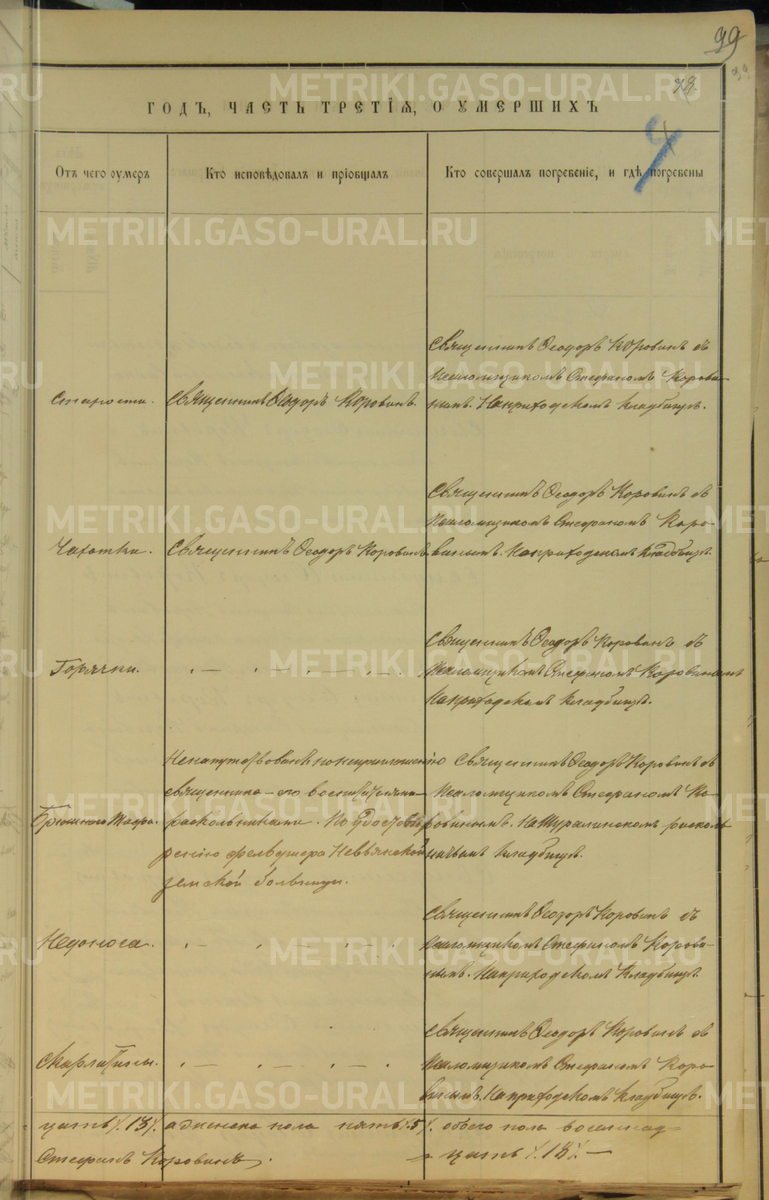 99
78.
ГОДЪ, ЧАСТЬ ТРЕТІЯ, О УМЕРШИХЪ
Отъ чего оумеръ
Кто исповѣдовалъ и пріобщалъ
Кто совершалъ погребеніе, и гдѣ погребены
Старости.
Священникъ Ѳеодоръ Коровинъ.
Священникъ Ѳеодоръ Коровинъ съ
Псаломщикомъ Стефаномъ Корови-
нымъ. На приходскомъ кладбищѣ.
Чахотки.
Священникъ Ѳеодоръ Коровинъ.
Священникъ Ѳеодоръ Коровинъ съ
Псаломщикомъ Стефаномъ Коро-
винымъ. На приходскомъ кладбищѣ.
Горячки.
Священникъ Ѳеодоръ Коровинъ съ
Псаломщикомъ Стефаномъ Коровинымъ
На приходскомъ кладбищѣ.
Брюшного Тифа.
Ненапутствованъ по неприглашенію
священника – его воспитателями
раскольниками. По удостовѣ-
ренію фельдшера Невьянской
земской больницы.
Священникъ Ѳеодоръ Коровинъ съ
Псаломщикомъ Стефаномъ Ко-
ровинымъ. На Шуралинскомъ расколь
ничьемъ кладбищѣ.
Недоноса.
Священникъ Ѳеодоръ Коровинъ съ
Псаломщикомъ Стефаномъ Корови-
нымъ. На приходскомъ кладбищѣ.
Скарлатины.
Священникъ Ѳеодоръ Коровинъ съ
Псаломщикомъ Стефаномъ Коро-
винымъ. На приходскомъ кладбищѣ.
цать /.13/. а женска пола пять /.5/. обоего пола восемнад-
Стефанъ Коровинъ.
цать /.18/. –
METRIKI.GASO-URAL.RU